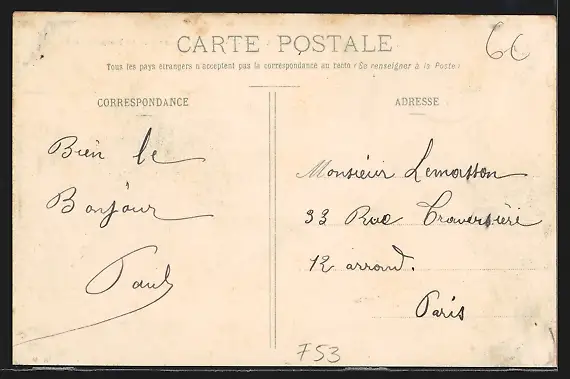 CARTE POSTALE
Tous les pays étrangers n'acceptent pas la correspondance au recto (Se renseigner à la Poste)
CORRESPONDANCE
Bien le
Bonjour
Paul
ADRESSE
Monsieur Lemasson
33 Rue Traversière
12 arrond.
Paris
60
F53